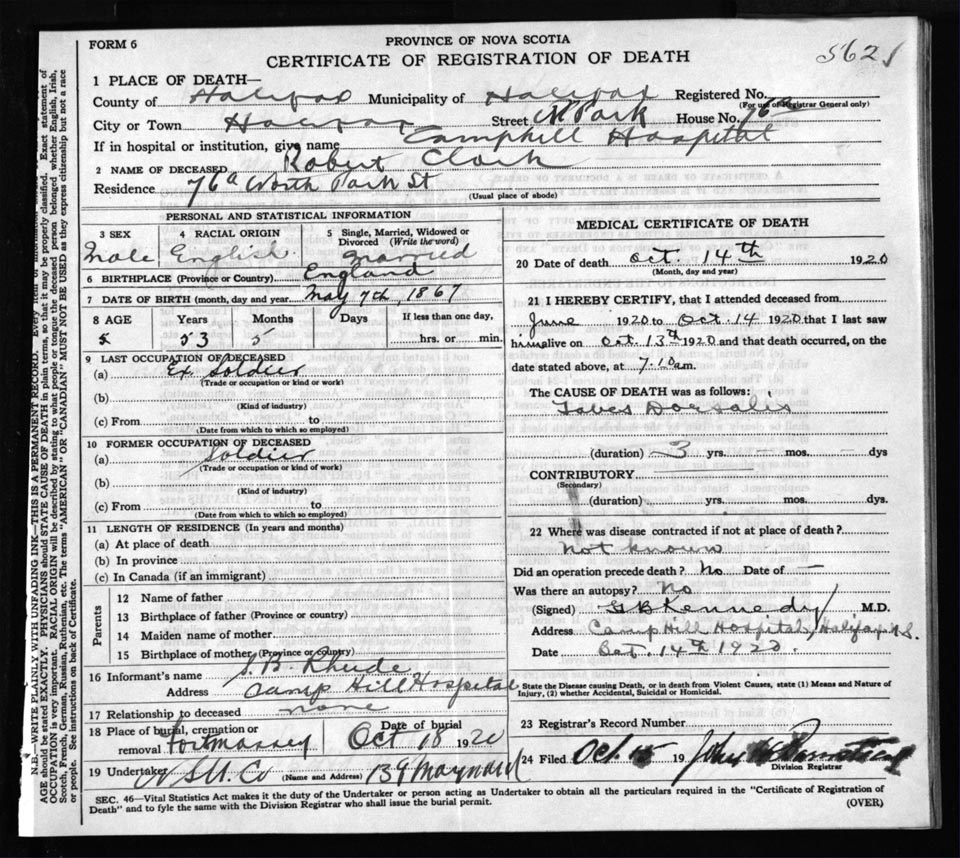 FORM 6
PROVINCE OF NOVA SCOTIA
CERTIFICATE OF REGISTRATION OF DEATH
5621
1 PLACE OF DEATH—
County of Halifax Municipality of Halifax Registered No.
(For use of Registrar General only)
City or Town Halifax Street N Park House No. 76a
If in hospital or institution, give name Camphill Hospital
2 NAME OF DECEASED Robert Clark
Residence 76a North Park St
(Usual place of abode)
PERSONAL AND STATISTICAL INFORMATION
3 SEX 4 RACIAL ORIGIN 5 Single, Married, Widowed or Divorced (Write the word)
Male English Married
6 BIRTHPLACE (Province or Country) England
7 DATE OF BIRTH (month, day and year) May 7th, 1867
8 AGE Years Months Days If less than one day,
5 53 5 hrs. or min.
9 LAST OCCUPATION OF DECEASED
(a) Ex Soldier
(Trade or occupation or kind or work)
(b)
(Kind of industry)
(c) From to
(Date from which to which so employed)
10 FORMER OCCUPATION OF DECEASED
(a) Soldier
(Trade or occupation or kind of work)
(b)
(Kind of industry)
(c) From to
(Date from which to which so employed)
11 LENGTH OF RESIDENCE (In years and months)
(a) At place of death
(b) In province
(c) In Canada (if an immigrant)
Parents
12 Name of father
13 Birthplace of father (Province or country)
14 Maiden name of mother
15 Birthplace of mother (Province or country)
16 Informant's name J. B. Rhude
Address Camp Hill Hospital
17 Relationship to deceased none
18 Place of burial, cremation or removal Fort Massey
Date of burial Oct 18 1920
19 Undertaker N S U. Co (Name and Address) 139 Maynard
MEDICAL CERTIFICATE OF DEATH
20 Date of death Oct. 14th 1920
(Month, day and year)
21 I HEREBY CERTIFY, that I attended deceased from
June 1920 to Oct. 14 1920 that I last saw
him alive on Oct. 13th 1920 and that death occurred, on the
date stated above, at 7.10 am.
The CAUSE OF DEATH was as follows:
Tabes Dorsalis
(duration) 3 yrs. — mos. — dys
CONTRIBUTORY
(Secondary)
(duration) yrs. mos. dys.
22 Where was disease contracted if not at place of death?
Not known
Did an operation precede death? No Date of —
Was there an autopsy? No
(Signed) G B Kennedy M.D.
Address Camp Hill Hospital, Halifax, N.S.
Date Oct. 14th 1920.
State the Disease causing Death, or in death from Violent Causes, state (1) Means and Nature of
Injury, (2) whether Accidental, Suicidal or Homicidal.
23 Registrar's Record Number
24 Filed Oct. 15 19 John
Division Registrar
SEC. 46—Vital Statistics Act makes it the duty of the Undertaker or person acting as Undertaker to obtain all the particulars required in the "Certificate of Registration of
Death" and to fyle the same with the Division Registrar who shall issue the burial permit.
(OVER)
N.B.—WRITE PLAINLY WITH UNFADING INK—THIS IS A PERMANENT RECORD. Every item of information
AGE should be stated EXACTLY. PHYSICIANS should STATE CAUSE OF DEATH in plain terms, so that it may be properly classified. Exact statement of
OCCUPATION is very important. RACIAL ORIGIN will be described by stating to what people or tongue the deceased person belonged whether English, Irish,
Scotch, French, German, Russian, Ruthenian, etc. The terms "AMERICAN" OR "CANADIAN" MUST NOT BE USED as they express citizenship but not a race
or people. See instructions on back of Certificate.